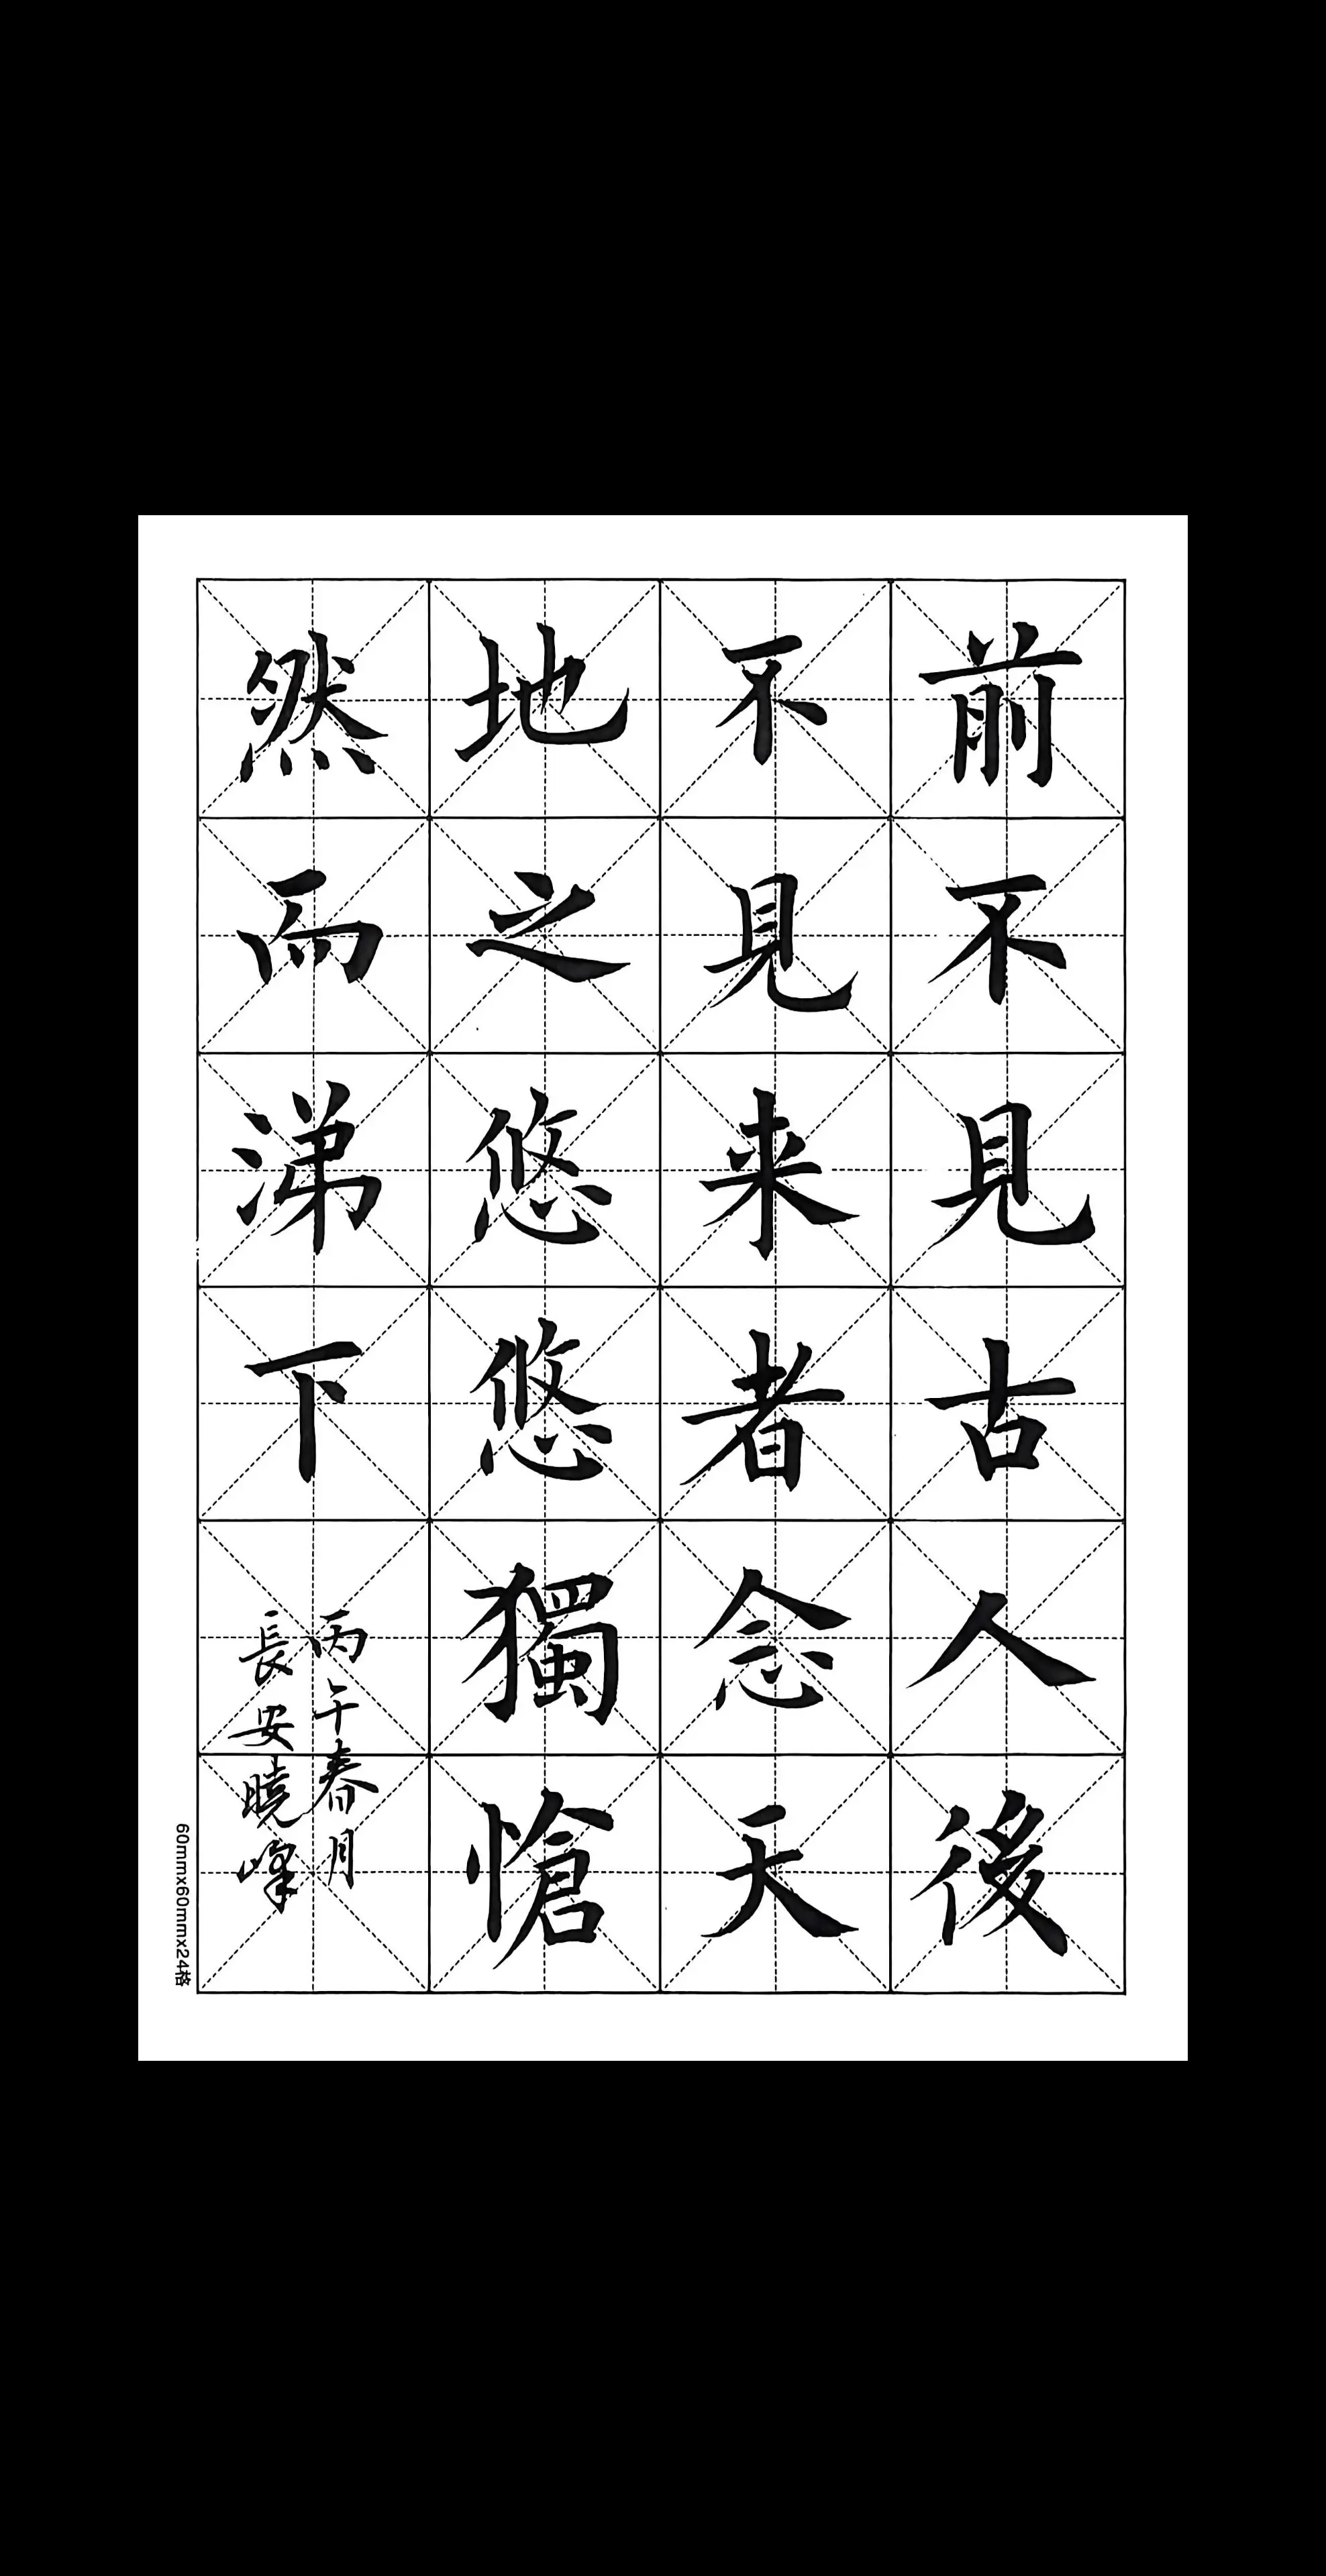 前不見古人後
不見来者念天
地之悠悠獨愴
然而涕下
丙午春月
長安曉峰
60mmx60mmx24格